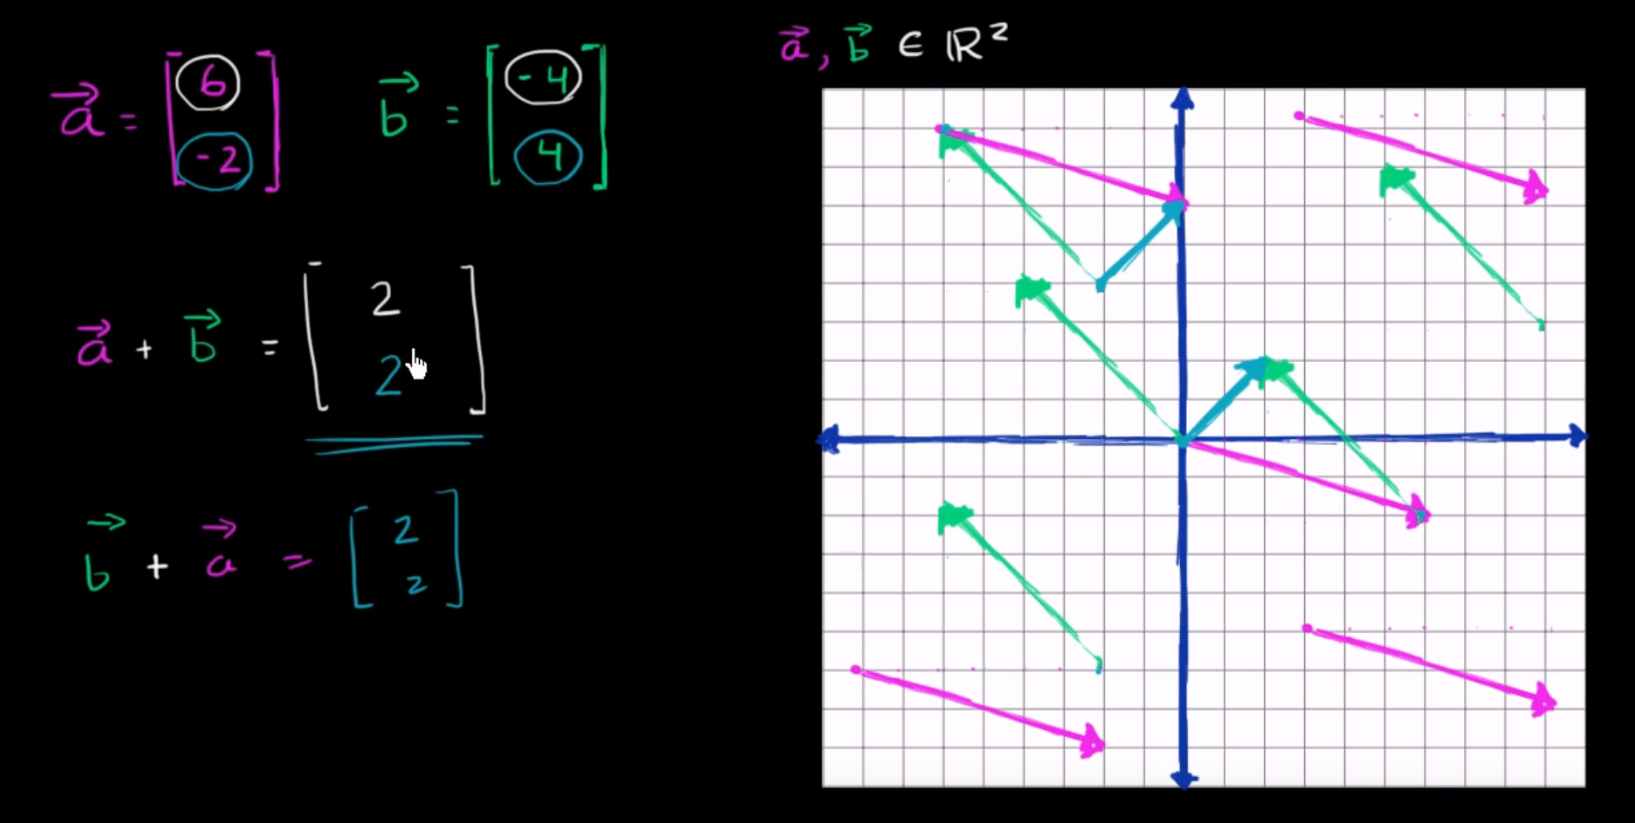 a⃗ = [6 -2]
b⃗ = [-4 4]
a⃗, b⃗ ∈ ℝ²
a⃗ + b⃗ = [2 2]
b⃗ + a⃗ = [2 2]